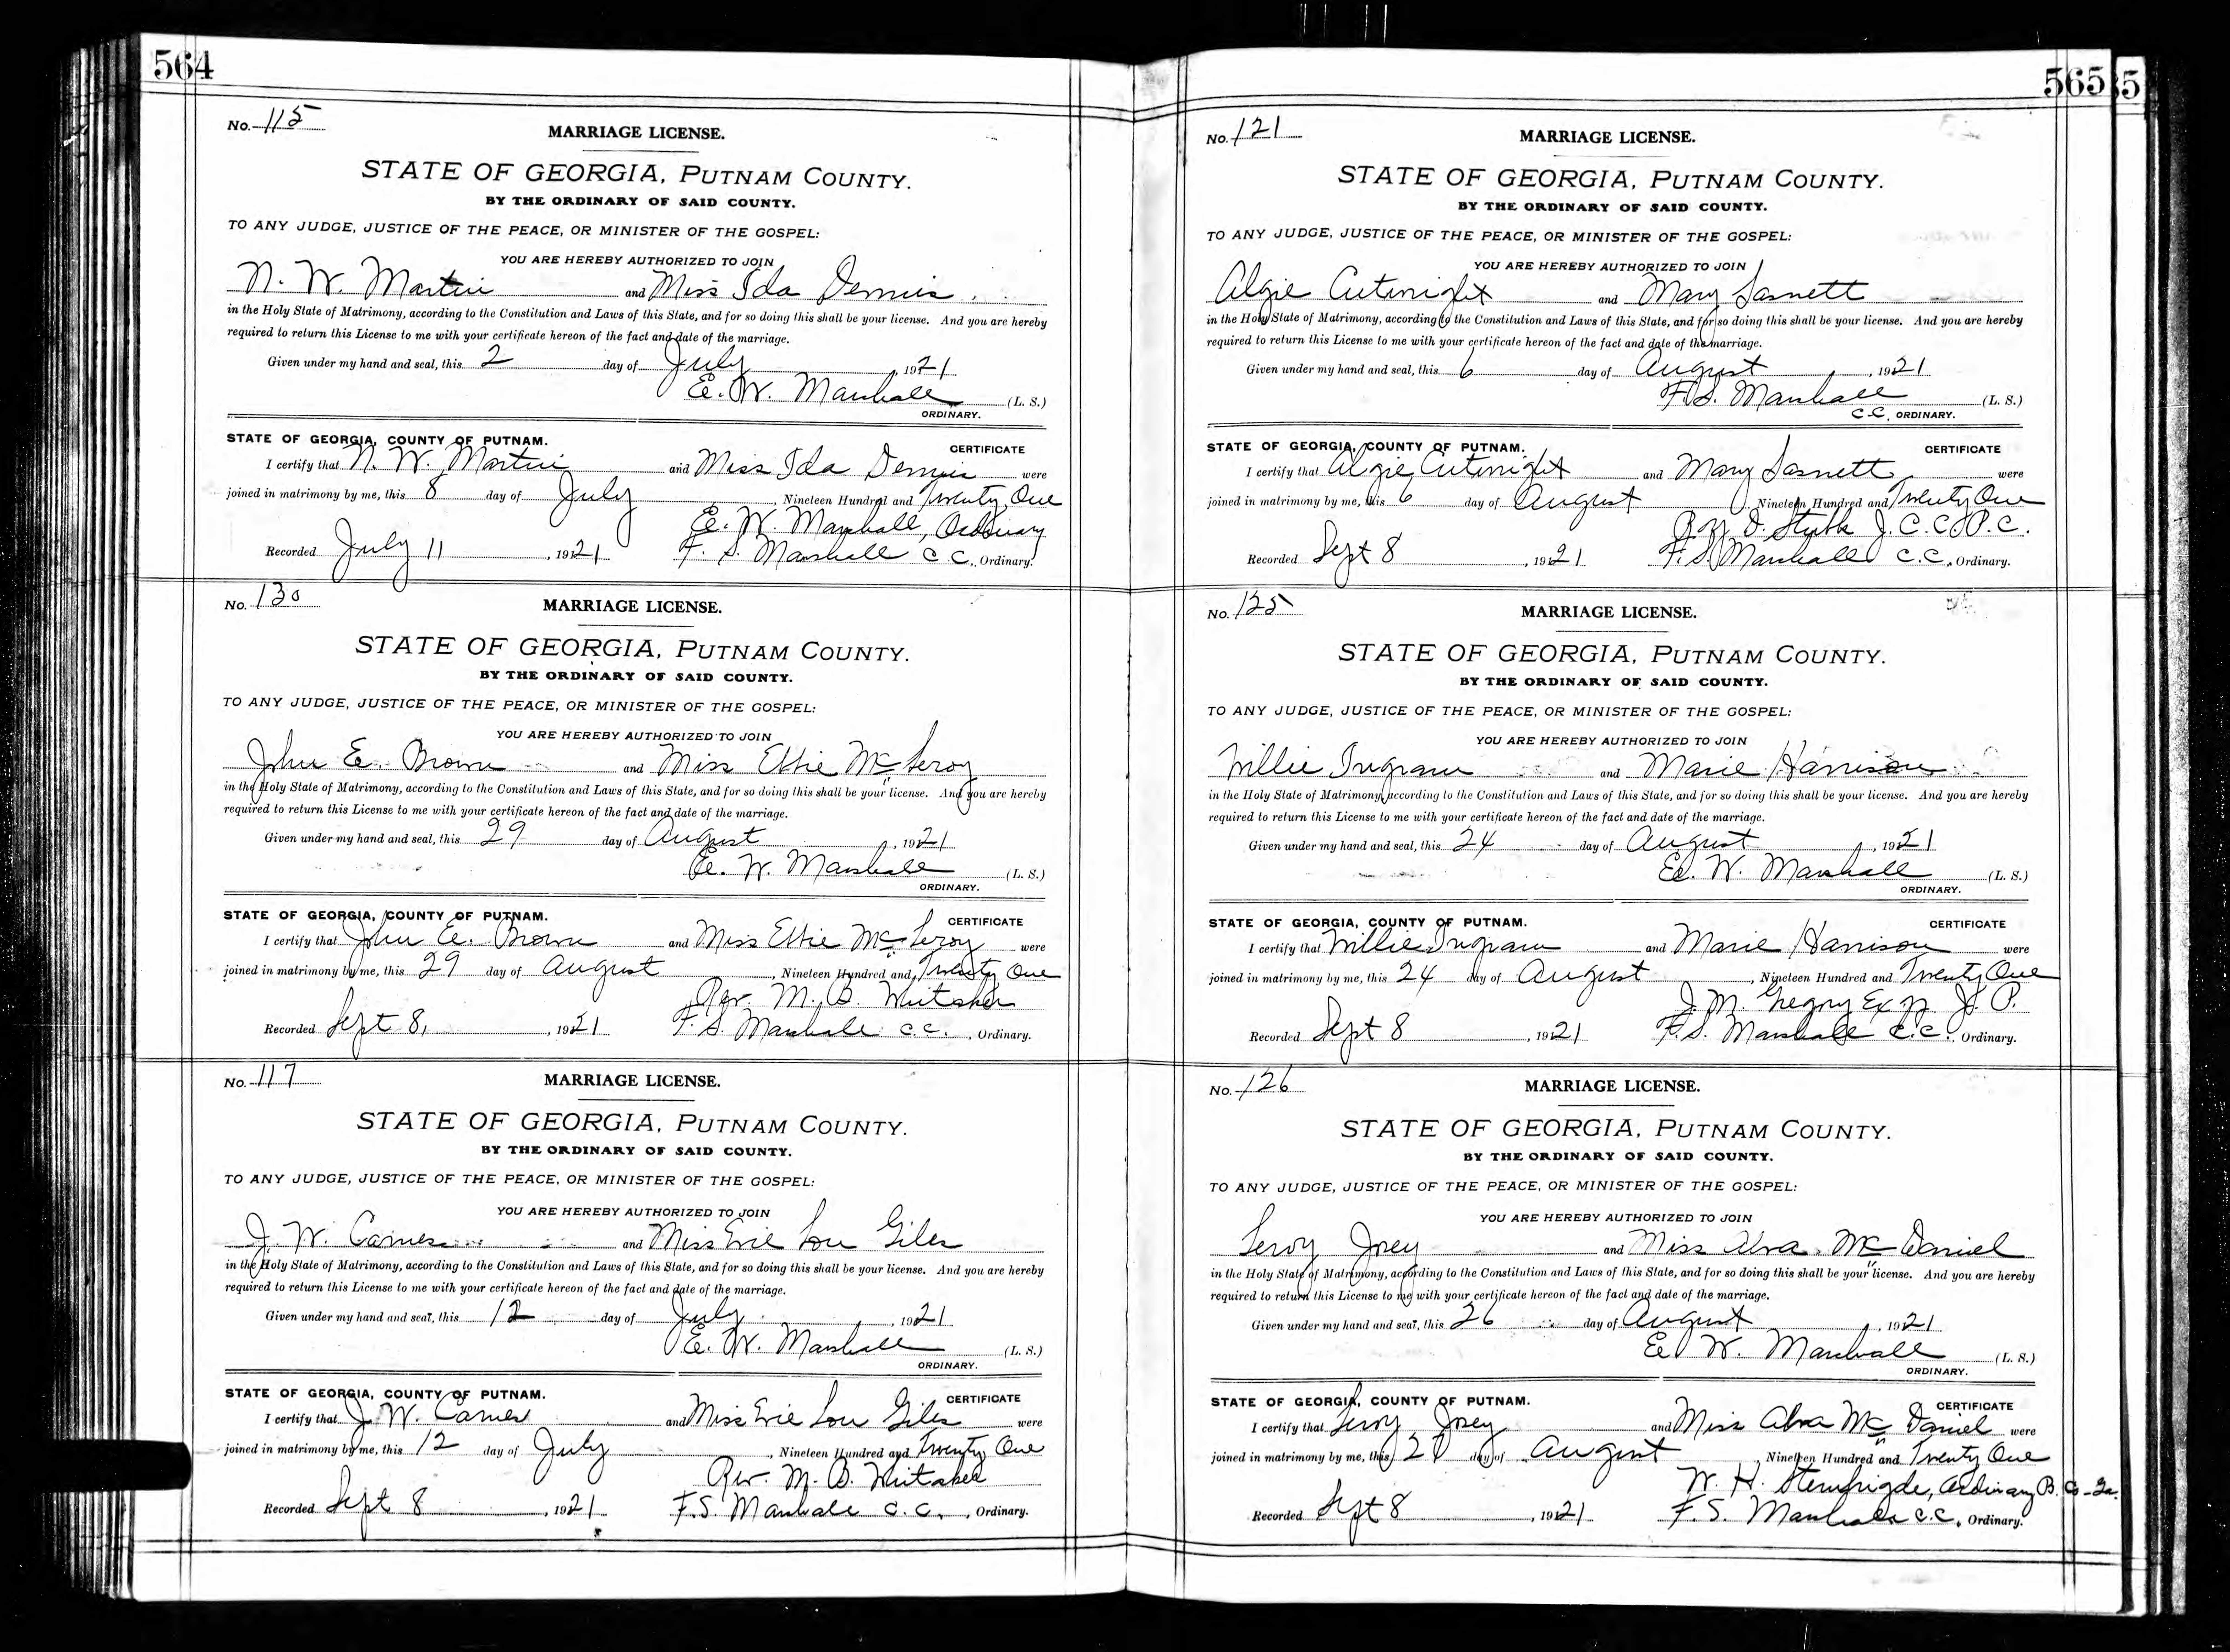 564
No. 115
MARRIAGE LICENSE.
STATE OF GEORGIA, PUTNAM COUNTY.
BY THE ORDINARY OF SAID COUNTY.
TO ANY JUDGE, JUSTICE OF THE PEACE, OR MINISTER OF THE GOSPEL:
YOU ARE HEREBY AUTHORIZED TO JOIN
N. W. Martin and Miss Ida Dennis
in the Holy State of Matrimony, according to the Constitution and Laws of this State, and for so doing this shall be your license. And you are hereby
required to return this License to me with your certificate hereon of the fact and date of the marriage.
Given under my hand and seal, this 2 day of July, 1921
E. W. Marshall (L. S.)
ORDINARY.
STATE OF GEORGIA, COUNTY OF PUTNAM. CERTIFICATE
I certify that N. W. Martin and Miss Ida Dennis were
joined in matrimony by me, this 8 day of July, Nineteen Hundred and Twenty One
E. W. Marshall, Ordinary
Recorded July 11, 1921 F. S. Marshall C. C., Ordinary.
No. 130
MARRIAGE LICENSE.
STATE OF GEORGIA, PUTNAM COUNTY.
BY THE ORDINARY OF SAID COUNTY.
TO ANY JUDGE, JUSTICE OF THE PEACE, OR MINISTER OF THE GOSPEL:
YOU ARE HEREBY AUTHORIZED TO JOIN
John E. Brown and Miss Effie McLeroy
in the Holy State of Matrimony, according to the Constitution and Laws of this State, and for so doing this shall be your license. And you are hereby
required to return this License to me with your certificate hereon of the fact and date of the marriage.
Given under my hand and seal, this 29 day of August, 1921
E. W. Marshall (L. S.)
ORDINARY.
STATE OF GEORGIA, COUNTY OF PUTNAM. CERTIFICATE
I certify that John E. Brown and Miss Effie McLeroy were
joined in matrimony by me, this 29 day of August, Nineteen Hundred and Twenty One
Rev. M. B. Whitaker
Recorded Sept 8, 1921 F. S. Marshall C. C., Ordinary.
No. 117
MARRIAGE LICENSE.
STATE OF GEORGIA, PUTNAM COUNTY.
BY THE ORDINARY OF SAID COUNTY.
TO ANY JUDGE, JUSTICE OF THE PEACE, OR MINISTER OF THE GOSPEL:
YOU ARE HEREBY AUTHORIZED TO JOIN
J. W. Carnes and Miss Evie Lou Giles
in the Holy State of Matrimony, according to the Constitution and Laws of this State, and for so doing this shall be your license. And you are hereby
required to return this License to me with your certificate hereon of the fact and date of the marriage.
Given under my hand and seal, this 12 day of July, 1921
E. W. Marshall (L. S.)
ORDINARY.
STATE OF GEORGIA, COUNTY OF PUTNAM. CERTIFICATE
I certify that J. W. Carnes and Miss Evie Lou Giles were
joined in matrimony by me, this 12 day of July, Nineteen Hundred and Twenty One
Rev. M. B. Whitaker
Recorded Sept 8, 1921 F. S. Marshall C. C., Ordinary.
565
No. 121
MARRIAGE LICENSE.
STATE OF GEORGIA, PUTNAM COUNTY.
BY THE ORDINARY OF SAID COUNTY.
TO ANY JUDGE, JUSTICE OF THE PEACE, OR MINISTER OF THE GOSPEL:
YOU ARE HEREBY AUTHORIZED TO JOIN
Algie Cutwright and Mary Sasnett
in the Holy State of Matrimony, according to the Constitution and Laws of this State, and for so doing this shall be your license. And you are hereby
required to return this License to me with your certificate hereon of the fact and date of the marriage.
Given under my hand and seal, this 6 day of August, 1921
F. S. Marshall (L. S.)
C. C. ORDINARY.
STATE OF GEORGIA, COUNTY OF PUTNAM. CERTIFICATE
I certify that Algie Cutwright and Mary Sasnett were
joined in matrimony by me, this 6 day of August, Nineteen Hundred and Twenty One
Roy D. J. C. C. P. C.
Recorded Sept 8, 1921 F. S. Marshall C. C., Ordinary.
No. 125
MARRIAGE LICENSE.
STATE OF GEORGIA, PUTNAM COUNTY.
BY THE ORDINARY OF SAID COUNTY.
TO ANY JUDGE, JUSTICE OF THE PEACE, OR MINISTER OF THE GOSPEL:
YOU ARE HEREBY AUTHORIZED TO JOIN
Willie Ingram and Marie Harrison
in the Holy State of Matrimony, according to the Constitution and Laws of this State, and for so doing this shall be your license. And you are hereby
required to return this License to me with your certificate hereon of the fact and date of the marriage.
Given under my hand and seal, this 24 day of August, 1921
E. W. Marshall (L. S.)
ORDINARY.
STATE OF GEORGIA, COUNTY OF PUTNAM. CERTIFICATE
I certify that Willie Ingram and Marie Harrison were
joined in matrimony by me, this 24 day of August, Nineteen Hundred and Twenty One
J. M. Gregory Ex N. J. P.
Recorded Sept 8, 1921 F. S. Marshall C. C., Ordinary.
No. 126
MARRIAGE LICENSE.
STATE OF GEORGIA, PUTNAM COUNTY.
BY THE ORDINARY OF SAID COUNTY.
TO ANY JUDGE, JUSTICE OF THE PEACE, OR MINISTER OF THE GOSPEL:
YOU ARE HEREBY AUTHORIZED TO JOIN
Leroy Ivey and Miss Alva McDaniel
in the Holy State of Matrimony, according to the Constitution and Laws of this State, and for so doing this shall be your license. And you are hereby
required to return this License to me with your certificate hereon of the fact and date of the marriage.
Given under my hand and seal, this 26 day of August, 1921
E. W. Marshall (L. S.)
ORDINARY.
STATE OF GEORGIA, COUNTY OF PUTNAM. CERTIFICATE
I certify that Leroy Ivey and Miss Alva McDaniel were
joined in matrimony by me, this day of August, Nineteen Hundred and Twenty One
W. H. Stembrigde, Ordinary B. Co - Ga.
Recorded Sept 8, 1921 F. S. Marshall C. C., Ordinary.